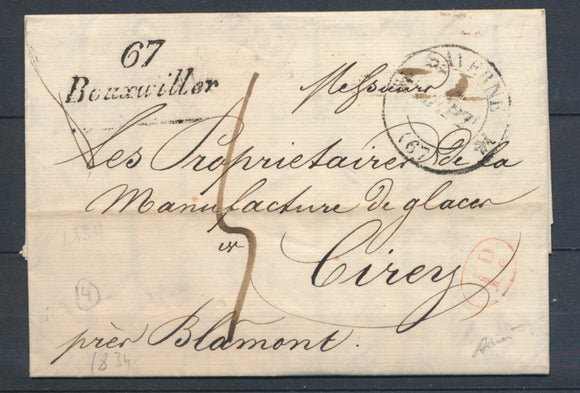 67
Bouxwiller
SAVERNE
(67)
Messieurs
Les Propriétaires de la
Manufacture de glaces
à
Cirey
près Blamont.
5
1834
4
1834